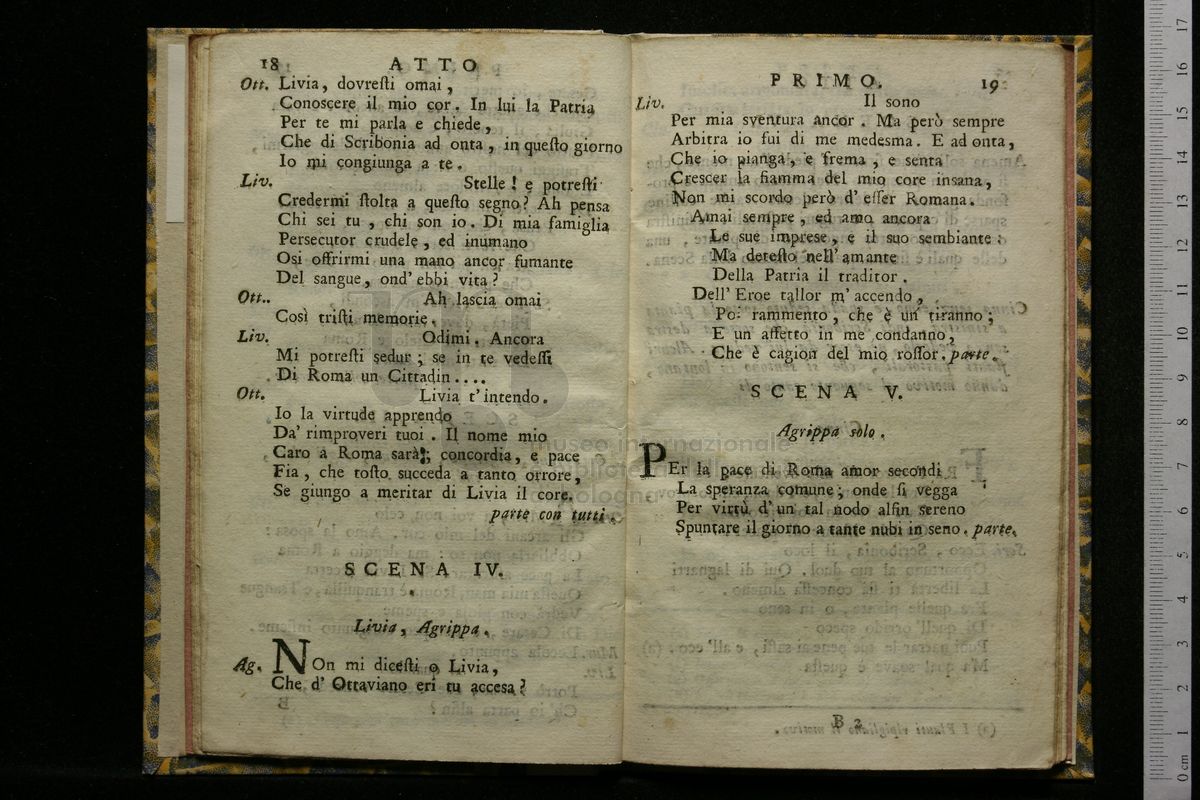 18 ATTO
Ott. Livia, dovreſti omai,
Conoscere il mio cor. In lui la Patria
Per te mi parla e chiede,
Che di Scribonia ad onta, in queſto giorno
Io mi congiunga a te.
Liv. Stelle! e potreſti
Credermi ſtolta a queſto segno? Ah pensa
Chi sei tu, chi son io. Di mia famiglia
Persecutor crudele, ed inumano
Osi offrirmi una mano ancor fumante
Del sangue, ond' ebbi vita?
Ott.. Ah lascia omai
Così triſti memorie.
Liv. Odimi. Ancora
Mi potreſti sedur; se in te vedeſſi
Di Roma un Cittadin....
Ott. Livia t'intendo.
Io la virtude apprendo
Da' rimproveri tuoi. Il nome mio
Caro a Roma sarà; concordia, e pace
Fia, che toſto succeda a tanto orrore,
Se giungo a meritar di Livia il core.
parte con tutti.
SCENA IV.
Livia, Agrippa.
Ag. NOn mi diceſti o Livia,
Che d' Ottaviano eri tu accesa?
PRIMO. 19
Liv. Il sono
Per mia sventura ancor. Ma però sempre
Arbitra io fui di me medesma. E ad onta,
Che io pianga, e frema, e senta
Crescer la fiamma del mio core insana,
Non mi scordo però d' eſſer Romana.
Amai sempre, ed amo ancora
Le sue imprese, e il suo sembiante:
Ma deteſto nell' amante
Della Patria il traditor.
Dell' Eroe tallor m' accendo,
Poi rammento, che è un tiranno;
E un affetto in me condanno,
Che è cagion del mio roſſor. parte.
SCENA V.
Agrippa solo.
PEr la pace di Roma amor secondi
La speranza comune; onde ſi vegga
Per virtù d' un tal nodo alfin sereno
Spuntare il giorno a tante nubi in seno. parte.
B 2
museo internazionale
bologna
0 cm 1 2 3 4 5 6 7 8 9 10 11 12 13 14 15 16 17